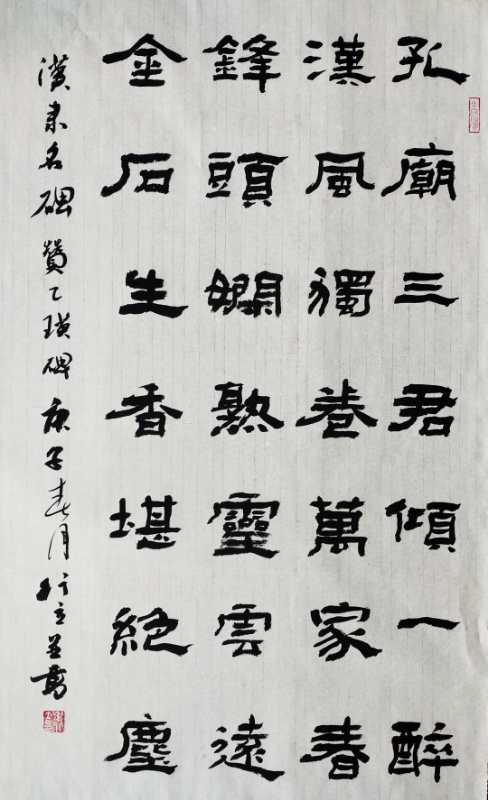 孔廟三君傾一醉
漢風獨卷萬家春
鋒頭嫻熟靈雲遠
金石生香堪絕塵
漢隶名碑贊乙瑛碑庚子春月